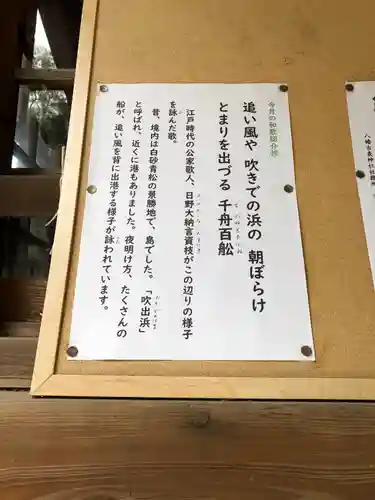 今月の和歌紹介
追い風や 吹きでの浜の 朝ぼらけ
とまりを出づる 千舟百舩
江戸時代の公家歌人、日野大納言資枝がこの辺りの様子
を詠んだ歌。
昔、境内は白砂青松の景勝地で、島でした。「吹出浜」
と呼ばれ、近くに港もありました。夜明け方、たくさんの
船が、追い風を背に出港する様子が詠われています。
八幡古表神社社務所